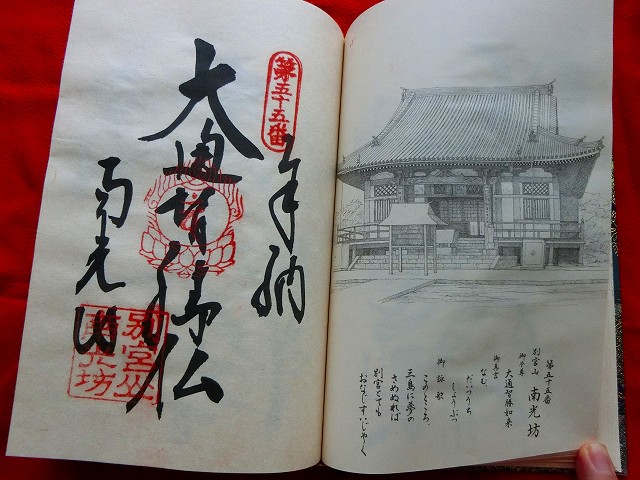 第五十五番
奉納
大通智勝仏
南光坊
別宮山
南光坊
第五十五番
別宮山 南光坊
御本尊
大通智勝如来
御真言
なむ
だいつうち
しょうぶつ
御詠歌
このところ、
三島に夢の
さめぬれば
別宮とても
おなじすいじゃく